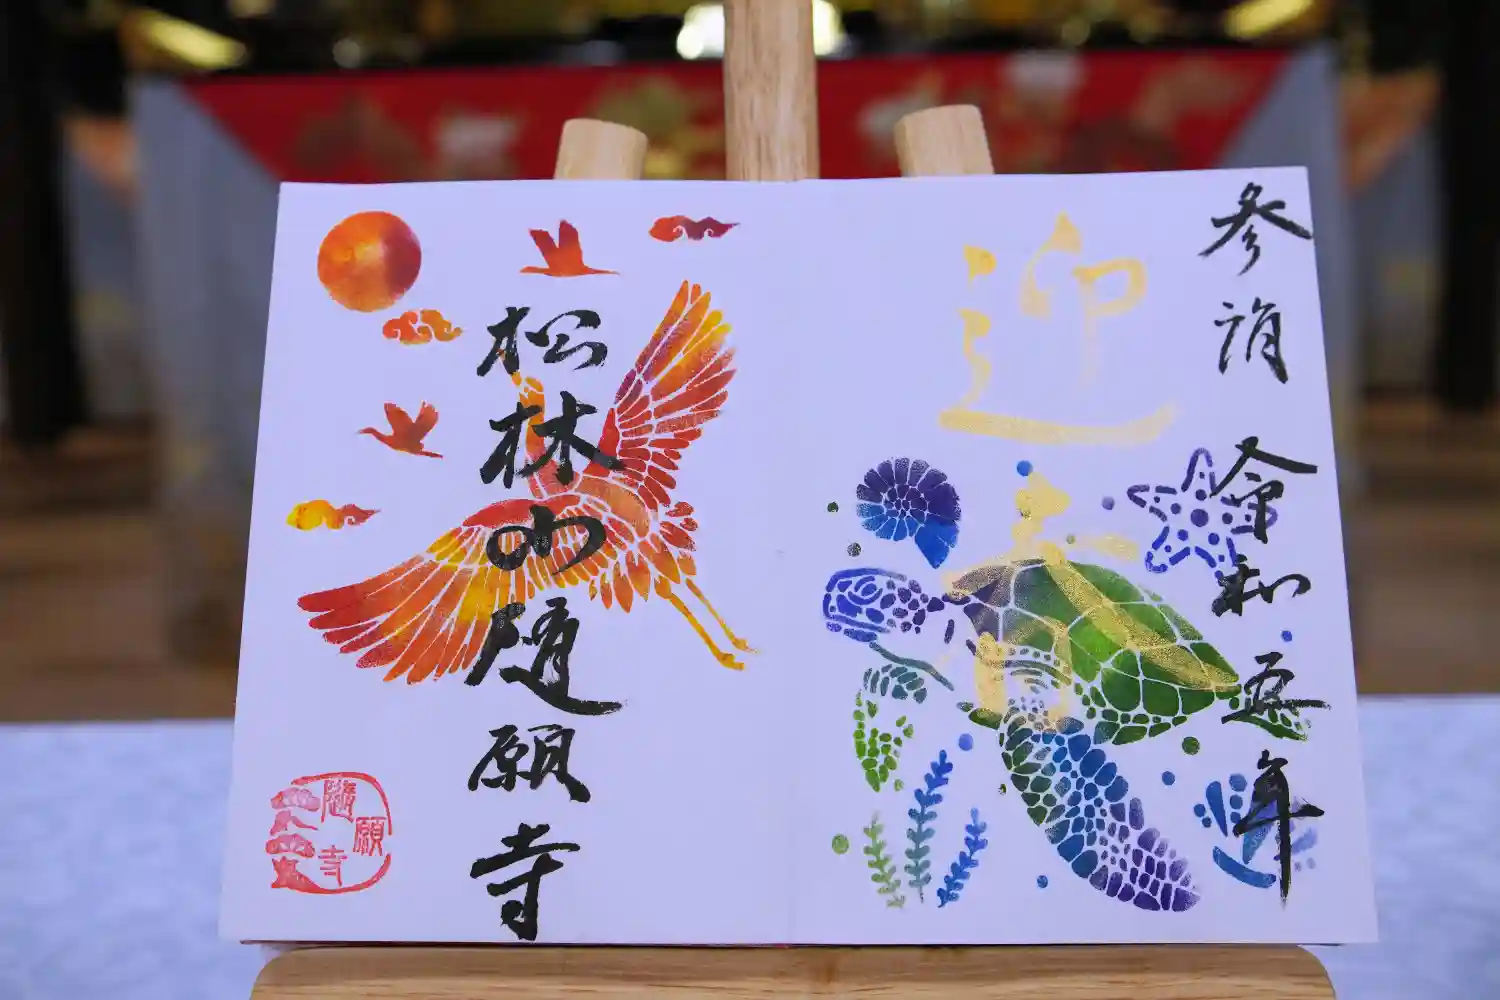 参詣 令和五年
迎春
松林山随願寺
隨願寺